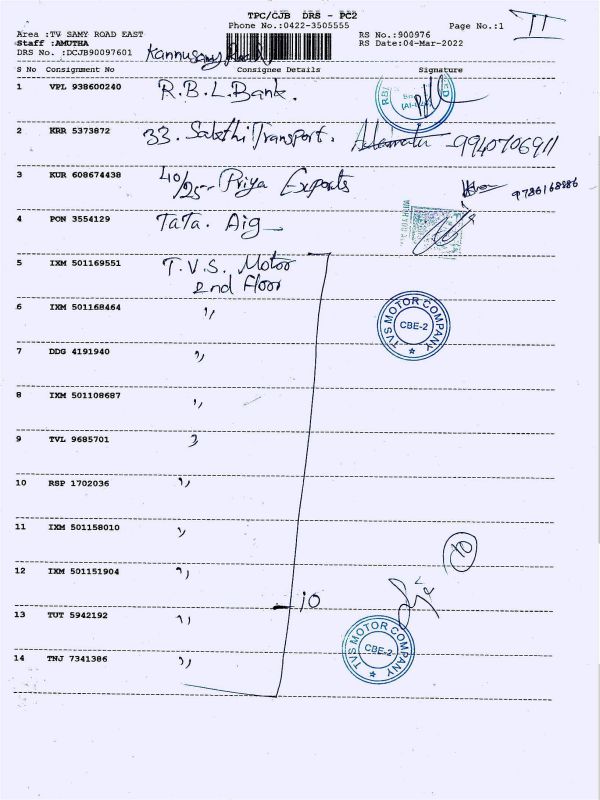 TPC/CJB DRS - PC2
Phone No.:0422-3505555
Page No.:1
II
Area :TV SAMY ROAD EAST
Staff :AMUTHA
DRS No. :DCJB90097601
Kannusamy Road
RS No.:900976
RS Date:04-Mar-2022
S No Consignment No Consignee Details Signature
1 VPL 938600240 R.B.L. Bank.
2 KRR 5373872 33. Sakthi Transport. 9940706911
3 KUR 608674438 40/25 Priya Exports 9786168886
4 PON 3554129 Tata. Aig
5 IXM 501169551 T.V.S. Motor
2nd Floor
6 IXM 501168464 ,,
TVS MOTOR COMPANY
CBE-2
7 DDG 4191940 ,,
8 IXM 501108687 ,,
9 TVL 9685701 ,,
10 RSP 1702036 ,,
11 IXM 501158010 ,,
10
12 IXM 501151904 ,,
10
13 TUT 5942192 ,,
TVS MOTOR COMPANY
CBE-2
14 TNJ 7341386 ,,